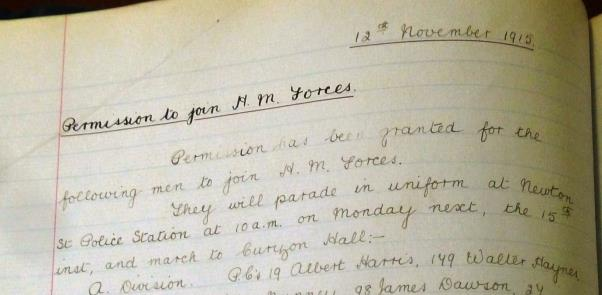 12th November 1915.
Permission to join H. M. Forces.
Permission has been granted for the
following men to join H. M. Forces.
They will parade in uniform at Newton
St Police Station at 10 a.m. on Monday next, the 15th
inst, and march to Curzon Hall:-
A. Division. P.C's 19 Albert Harris, 149 Walter Haynes
98 James Dawson, 24